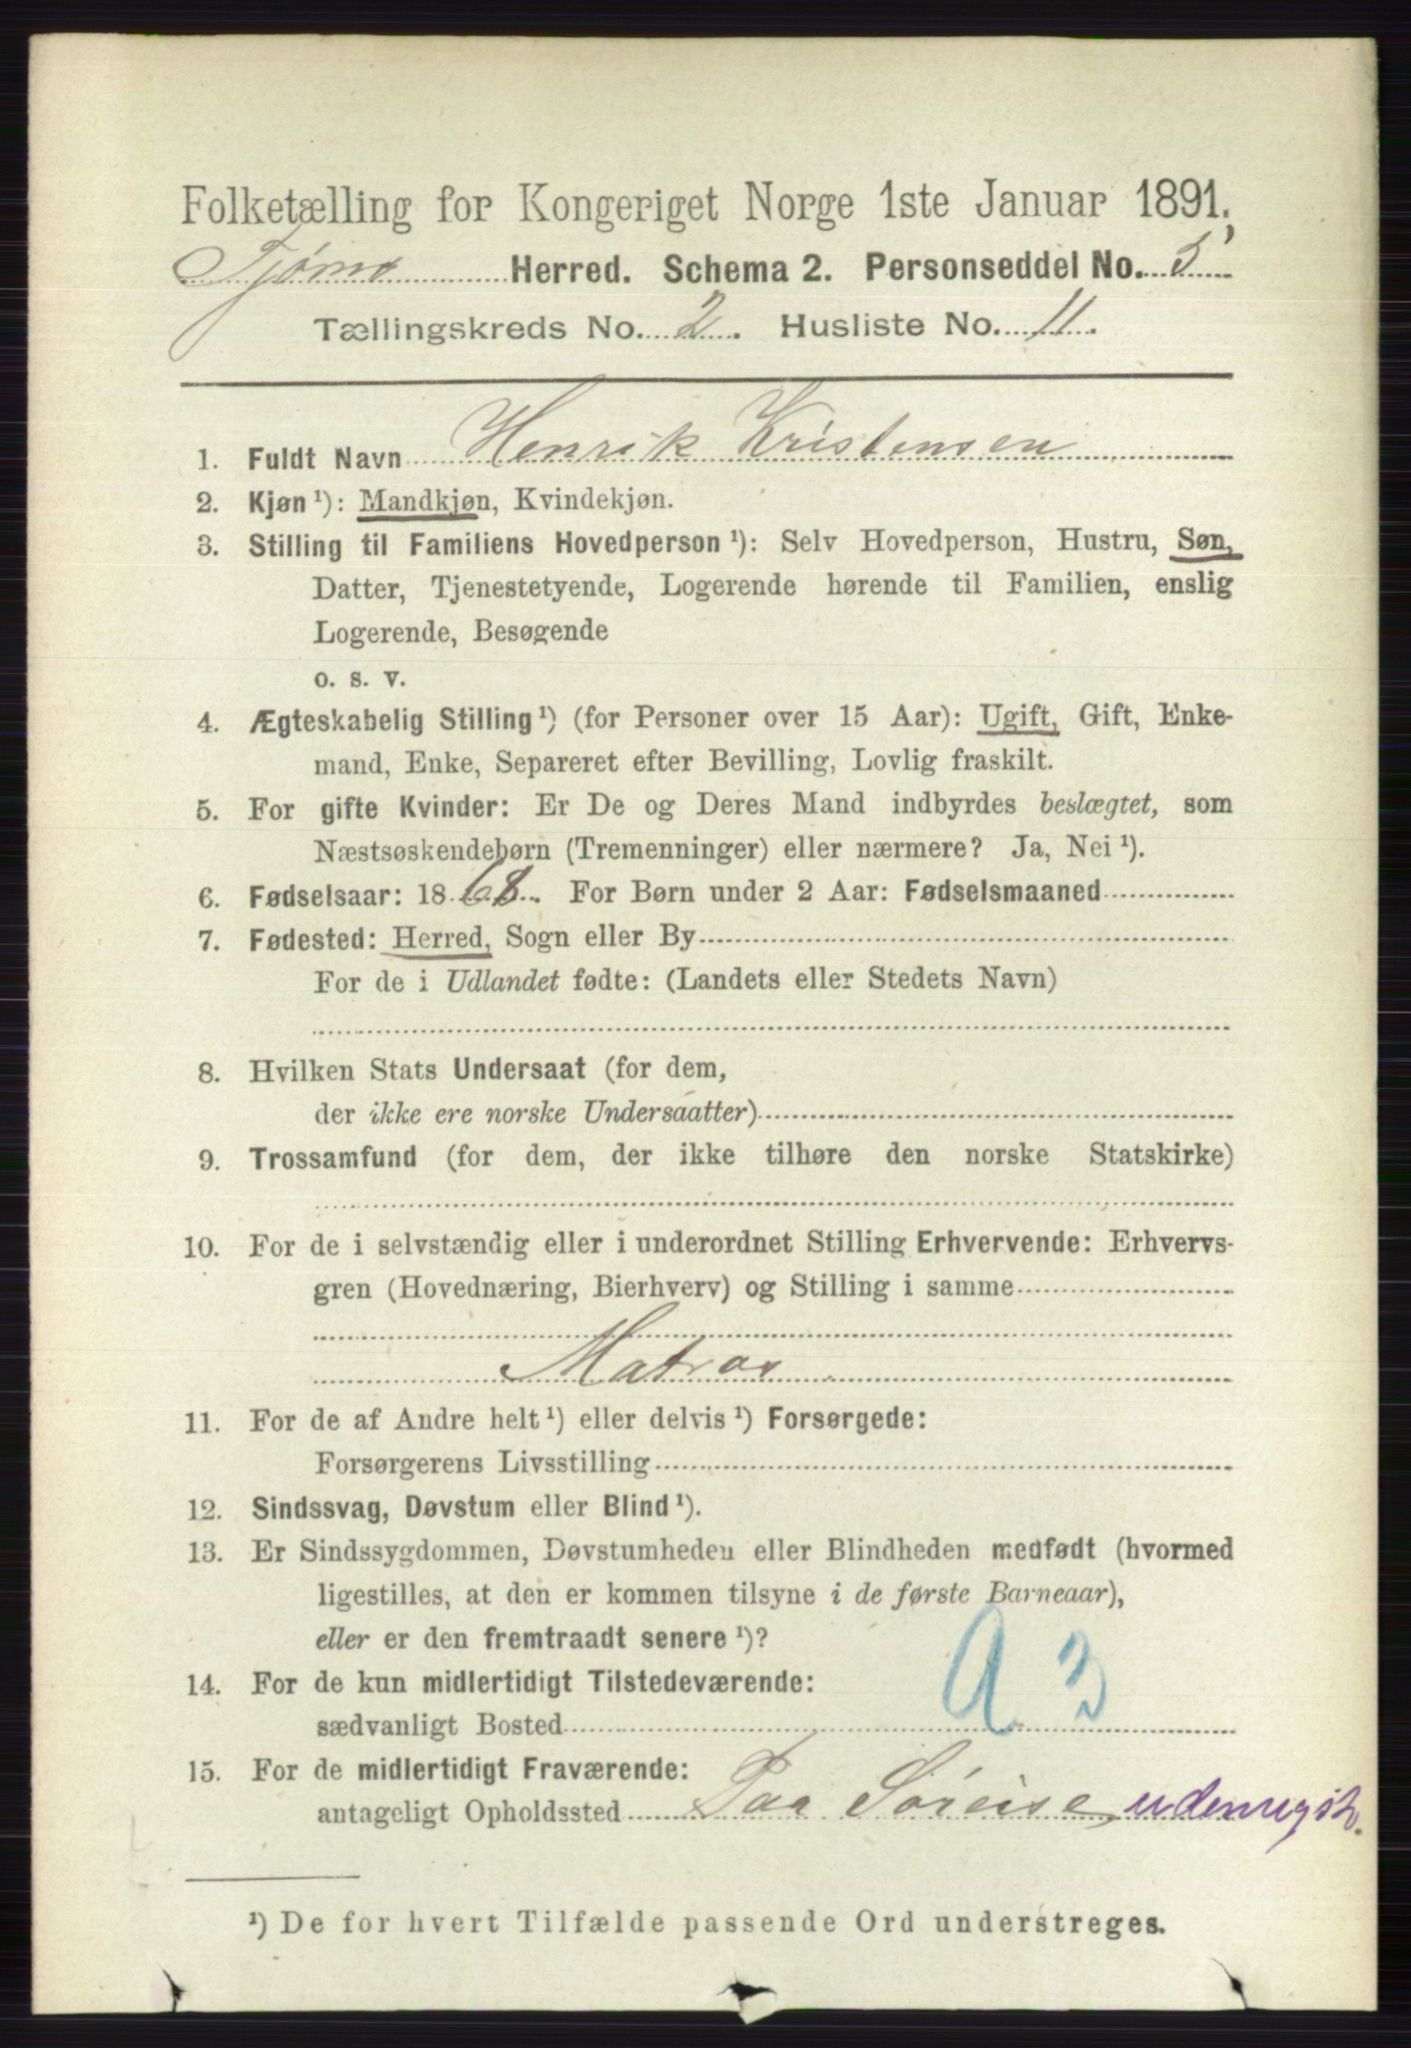 Folketælling for Kongeriget Norge 1ste Januar 1891.
Tjømø Herred. Schema 2. Personseddel No. 5
Tællingskreds No. 2. Husliste No. 11.
1. Fuldt Navn Henrik Kristensen
2. Kjøn ¹): Mandkjøn, Kvindekjøn.
3. Stilling til Familiens Hovedperson ¹): Selv Hovedperson, Hustru, Søn,
Datter, Tjenestetyende, Logerende hørende til Familien, enslig
Logerende, Besøgende
o. s. v.
4. Ægteskabelig Stilling ¹) (for Personer over 15 Aar): Ugift, Gift, Enke-
mand, Enke, Separeret efter Bevilling, Lovlig fraskilt.
5. For gifte Kvinder: Er De og Deres Mand indbyrdes beslægtet, som
Næstsøskendebørn (Tremenninger) eller nærmere? Ja, Nei ¹).
6. Fødselsaar: 1868. For Børn under 2 Aar: Fødselsmaaned
7. Fødested: Herred, Sogn eller By
For de i Udlandet fødte: (Landets eller Stedets Navn)
8. Hvilken Stats Undersaat (for dem,
der ikke ere norske Undersaatter)
9. Trossamfund (for dem, der ikke tilhøre den norske Statskirke)
10. For de i selvstændig eller i underordnet Stilling Erhvervende: Erhvervs-
gren (Hovednæring, Bierhverv) og Stilling i samme
Matros
11. For de af Andre helt ¹) eller delvis ¹) Forsørgede:
Forsørgerens Livsstilling
12. Sindssvag, Døvstum eller Blind ¹).
13. Er Sindssygdommen, Døvstumheden eller Blindheden medfødt (hvormed
ligestilles, at den er kommen tilsyne i de første Barneaar),
eller er den fremtraadt senere ¹)?
14. For de kun midlertidigt Tilstedeværende:
sædvanligt Bosted
a 3
15. For de midlertidigt Fraværende:
antageligt Opholdssted Paa Søreise, udenrigsk.
¹) De for hvert Tilfælde passende Ord understreges.